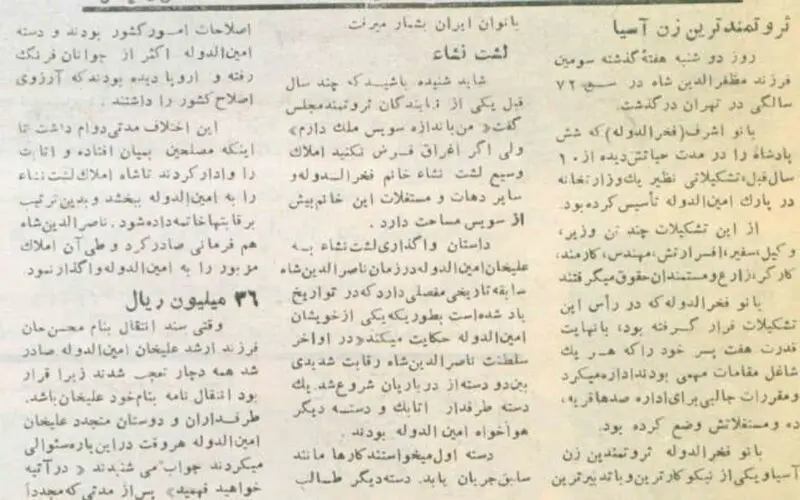 ثروتمندترین زن آسیا
روز دو شنبه هفتهٔ گذشته سومین
فرزند مظفرالدین شاه در سن ۷۲
سالگی در تهران درگذشت.
بانو اشرف(فخرالدوله)که شش
پادشاه را در مدت حیاتش دیده از۲۰
سال قبل، تشکیلاتی نظیر یك وزارتخانه
در پارك امین الدوله تأسیس کرده بود.
از این تشکیلات چند تن وزیر،
وکیل، سفیر، افسرارتش، مهندس، کارمند،
کارگر، زارع و مستمندان حقوق میگرفتند
بانو فخرالدوله که در رأس این
تشکیلات قرار گرفته بود، بانهایت
قدرت هفت پسر خود راکه هر یك
شاغل مقامات مهمی بودند اداره میکرد
و مقررات جالبی برای اداره صدها قریه،
ده و مستغلاتش وضع کرده بود.
بانو فخرالدوله ثروتمندین زن
آسیا و یکی از نیکو کارترین و با تدبیر ترین
بانوان ایران بشمار میرفت
لشت نشاء
شاید شنیده باشید که چند سال
قبل یکی از نمایندگان ثروتمند مجلس
گفت« من باندازه سویس ملك دارم»
ولی اگر اغراق فرض نکنید املاك
وسیع لشت نشاء خانم فخرالدوله و
سایر دهات و مستغلات این خانم بیش
از سویس مساحت دارد.
داستان واگذاری لشت نشاء به
علیخان امین الدوله در زمان ناصرالدین شاه
سابقه تاریخی مفصلی دارد که در تواریخ
یاد شده است بطوریکه یکی از خویشان
امین الدوله حکایت میکند« در اواخر
سلطنت ناصرالدین شاه رقابت شدیدی
بین دو دسته از درباریان شروع شد. یك
دسته طرفدار اتابك و دسته دیگر
هواخواه امین الدوله بودند.
دسته اول میخواستند کارها مانند
سابق جریان یابد. دسته دیگر طالب
اصلاحات امور کشور بودند و دسته
امین الدوله اکثر از جوانان فرنگ
رفته و اروپا دیده بودند که آرزوی
اصلاح کشور را داشتند.
این اختلاف مدتی دوام داشت تا
اینکه مصلحین بمیان افتاده و اتابك
را وادار کردند تا شاه املاك لشت نشاء
را به امین الدوله ببخشد و بدین ترتیب
برقابتها خاتمه داده شود. ناصرالدین شاه
هم فرمانی صادر کرد و طی آن املاك
مزبور را به امین الدوله واگذار نمود.
۳۶ میلیون ریال
وقتی سند انتقال بنام محسن خان
فرزند ارشد علیخان امین الدوله صادر
شد همه دچار تعجب شدند زیرا قرار
بود انتقال نامه بنام خود علیخان باشد.
طرفداران و دوستان متجدد علیخان
امین الدوله هر وقت در این باره سئوالی
میکردند جواب می شنیدند « در آتیه
خواهید فهمید» پس از مدتی که مجددا